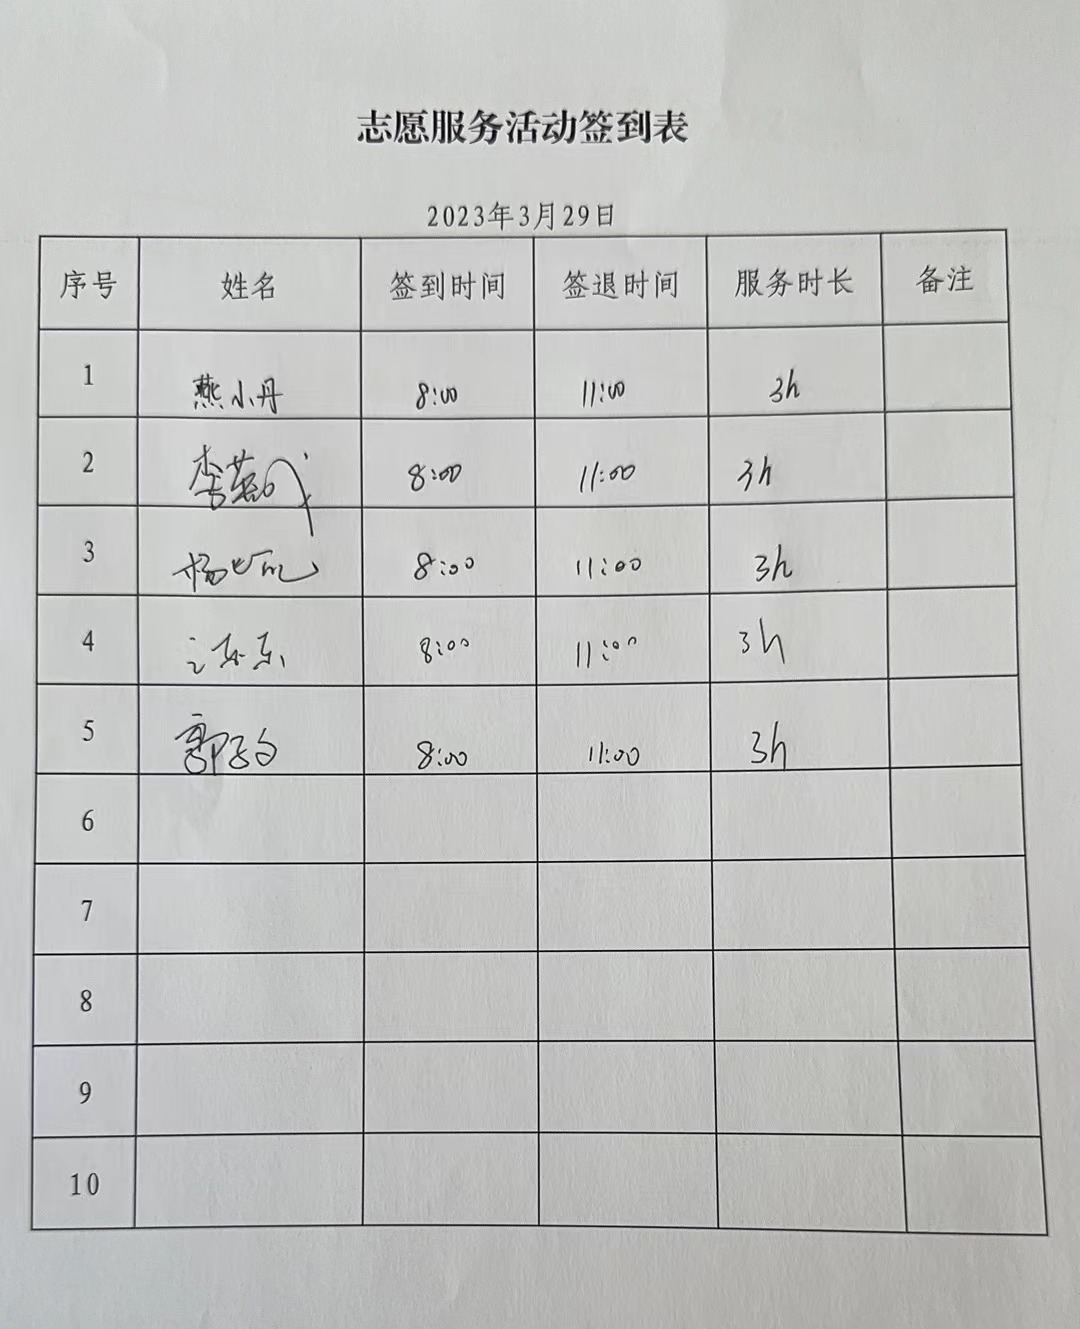 志愿服务活动签到表
2023年3月29日
序号 姓名 签到时间 签退时间 服务时长 备注
1 燕小丹 8:00 11:00 3h
2 李 8:00 11:00 3h
3 杨 8:00 11:00 3h
4 8:00 11:00 3h
5 郭子文 8:00 11:00 3h
6
7
8
9
10